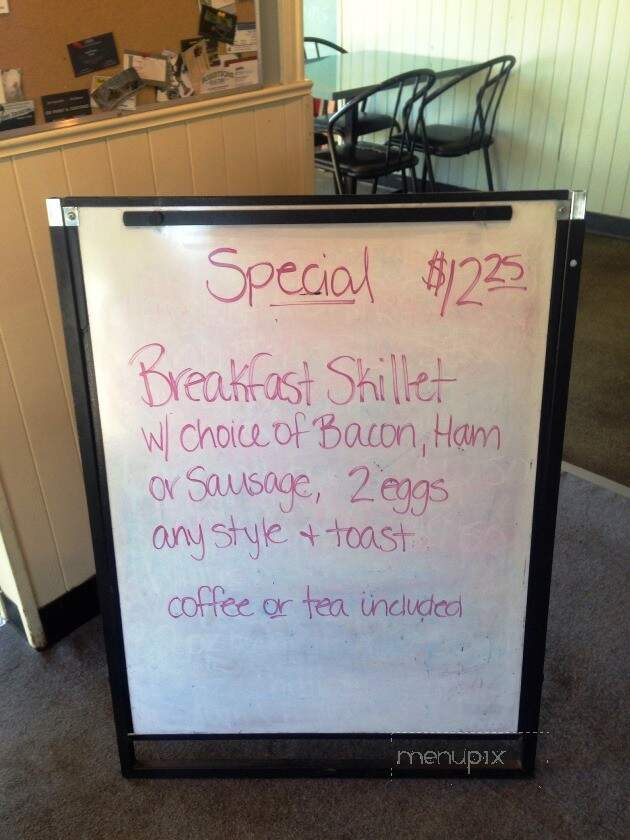 Special $12.25
Breakfast Skillet
w/ choice of Bacon, Ham
or Sausage, 2 eggs
any style + toast
coffee or tea included
menupix